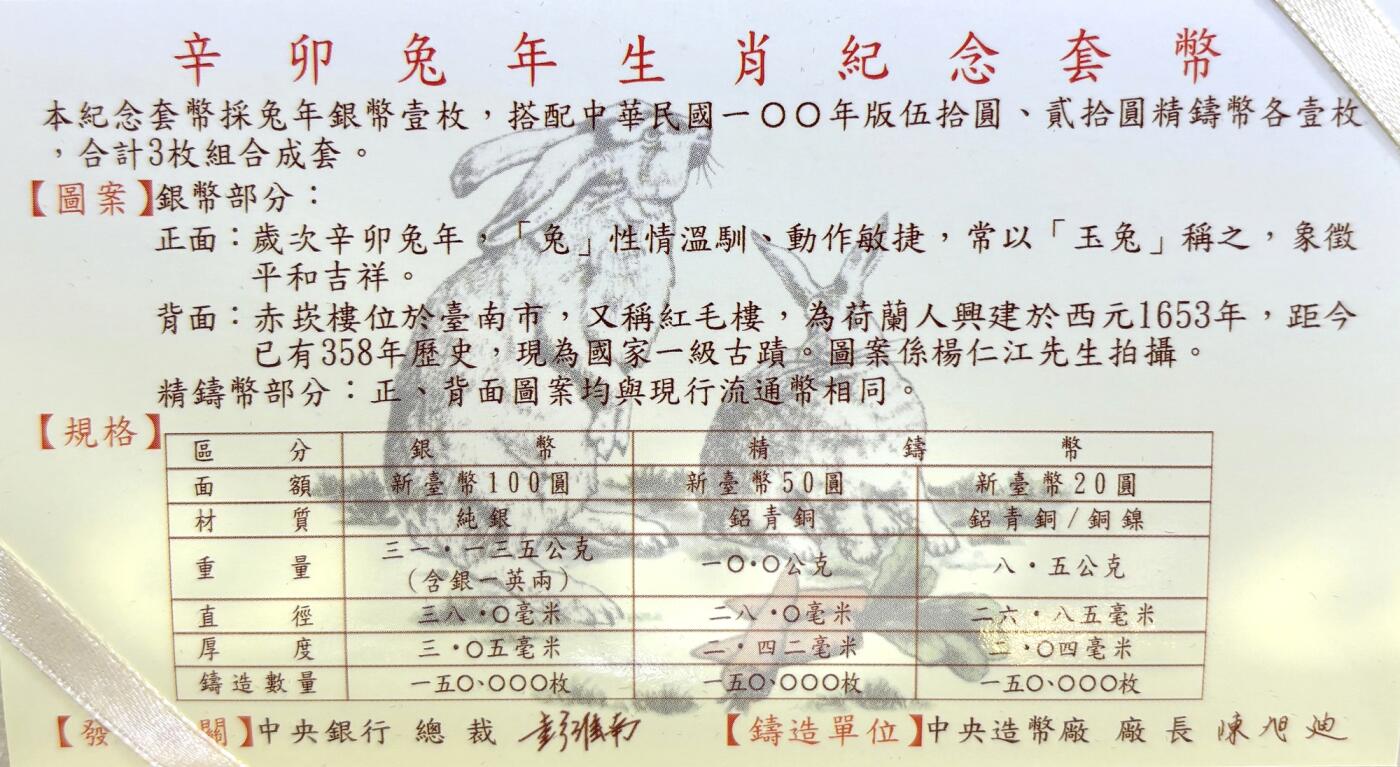 辛卯兔年生肖紀念套幣
本紀念套幣採兔年銀幣壹枚，搭配中華民國一〇〇年版伍拾圓、貳拾圓精鑄幣各壹枚
，合計3枚組合成套。
【圖案】銀幣部分：
正面：歲次辛卯兔年，「兔」性情溫馴、動作敏捷，常以「玉兔」稱之，象徵
平和吉祥。
背面：赤崁樓位於臺南市，又稱紅毛樓，為荷蘭人興建於西元1653年，距今
已有358年歷史，現為國家一級古蹟。圖案係楊仁江先生拍攝。
精鑄幣部分：正、背面圖案均與現行流通幣相同。
【規格】
區分 銀幣 精鑄幣
面額 新臺幣100圓 新臺幣50圓 新臺幣20圓
材質 純銀 鋁青銅 鋁青銅/銅鎳
重量 三一・一三五公克（含銀一英兩） 一〇・〇公克 八・五公克
直徑 三八・〇毫米 二八・〇毫米 二六・八五毫米
厚度 三・〇五毫米 二・四二毫米 ・〇四毫米
鑄造數量 一五〇、〇〇〇枚 一五〇、〇〇〇枚 一五〇、〇〇〇枚
【發 關】中央銀行 總裁 彭淮南 【鑄造單位】中央造幣廠 廠長 陳旭迪